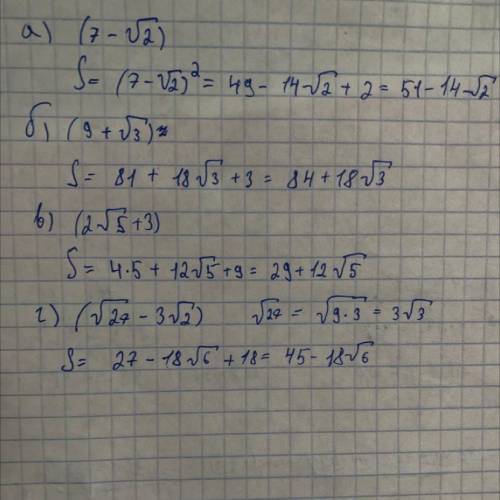 а) (7 - √2)
S = (7 - √2)² = 49 - 14√2 + 2 = 51 - 14√2
б) (9 + √3)
S = 81 + 18√3 + 3 = 84 + 18√3
в) (2√5 + 3)
S = 4·5 + 12√5 + 9 = 29 + 12√5
г) (√27 - 3√2) √27 = √9·3 = 3√3
S = 27 - 18√6 + 18 = 45 - 18√6